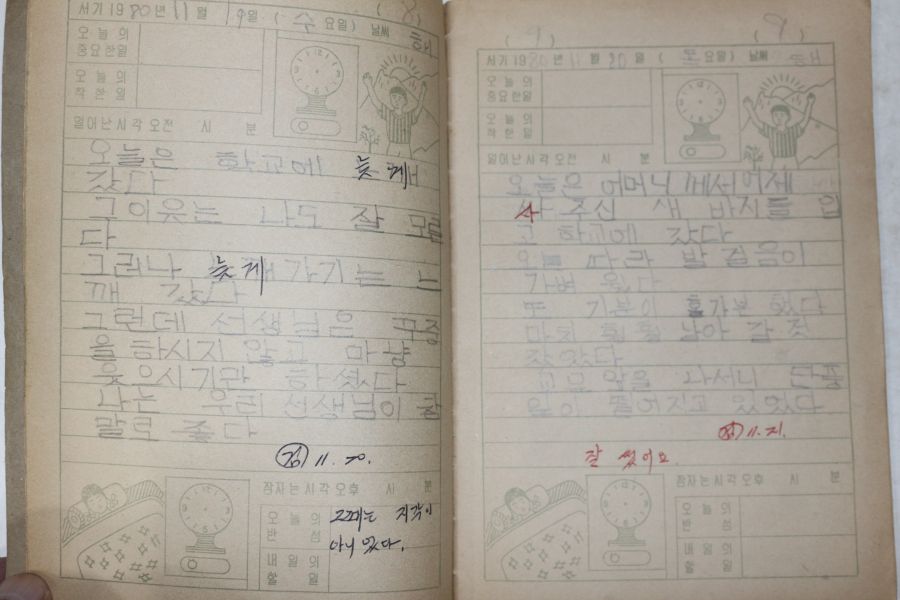 (8)
서기 1980년 11월 19일 (수요일) 날씨 해
오늘의 중요한일
오늘의 착한일
일어난시각 오전 시 분
오늘은 학교에 늦게
갔다
구이유는 나도 잘 모른
다
그러나 늦게 가기는 느
깨 갔다
그런데 선생님은 꾸중
을 하시지 않고 마냥
웃은시기만 하셨다
나는 우리 선생님이 참
말로 좋다
11. 20.
잠자는시각 오후 시 분
오늘의 반성
그때는 지각이
아니었다.
내일의 할일
(9) (9)
서기 1980년 11월 20일 (목요일) 날씨 해
오늘의 중요한일
오늘의 착한일
일어난시각 오전 시 분
오늘은 어머니께서 어제
사 주신 새 바지를 입
고 학교에 갔다
오늘 따라 발걸음이
가벼웠다
또 기분이 홀가분 했다
마치 훨훨 날아 갈 것
잤았다
일이 떨어지고 있었다
11. 21.
잘 썼어요.
잠자는시각 오후 시 분
오늘의 반성
내일의 할일